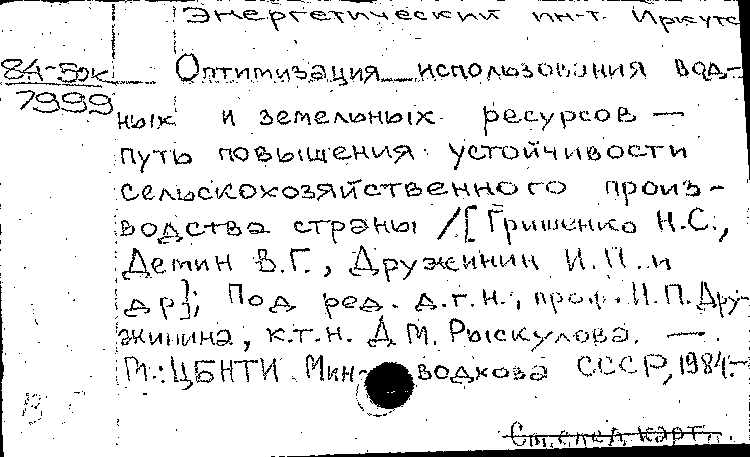 Энергетический ин-т. Иркутс
84-5ок
7999
Оптимизация использования вод-
ных и земельных ресурсов —
путь повышения устойчивости
сельскохозяйственного произ-
водства страны /[Гришенко Н.С.,
Демин В.Г., Дружинин И.П. и
др]; Под ред. д.г.н., проф. И.П. Дру-
жинина, к.т.н. Д.М. Рыскулова. —
М.: ЦБНТИ Мин- водхоза СССР, 1984.-
См. след. карт.